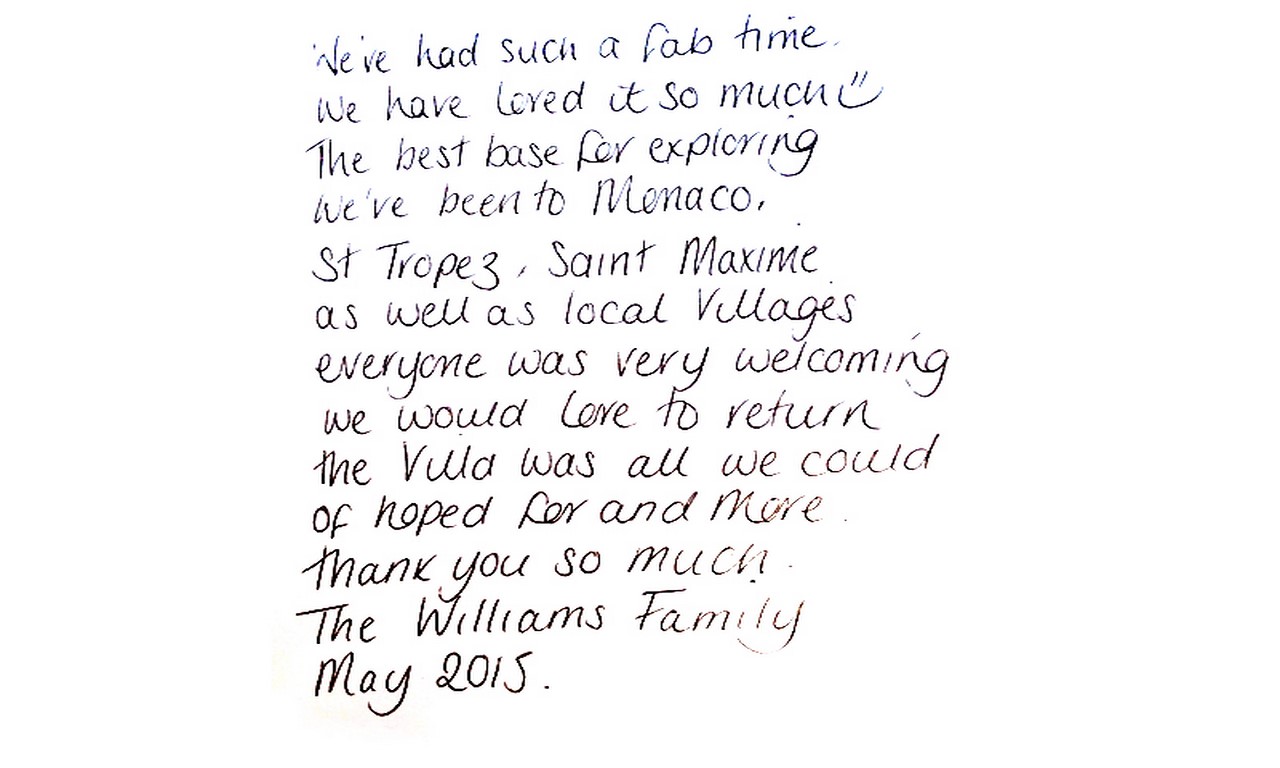 We've had such a fab time.
We have loved it so much ü
The best base for exploring
We've been to Monaco,
St Tropez, Saint Maxime
as well as local Villages
everyone was very welcoming
we would love to return
the Villa was all we could
of hoped for and More.
thank you so much.
The Williams Family
May 2015.